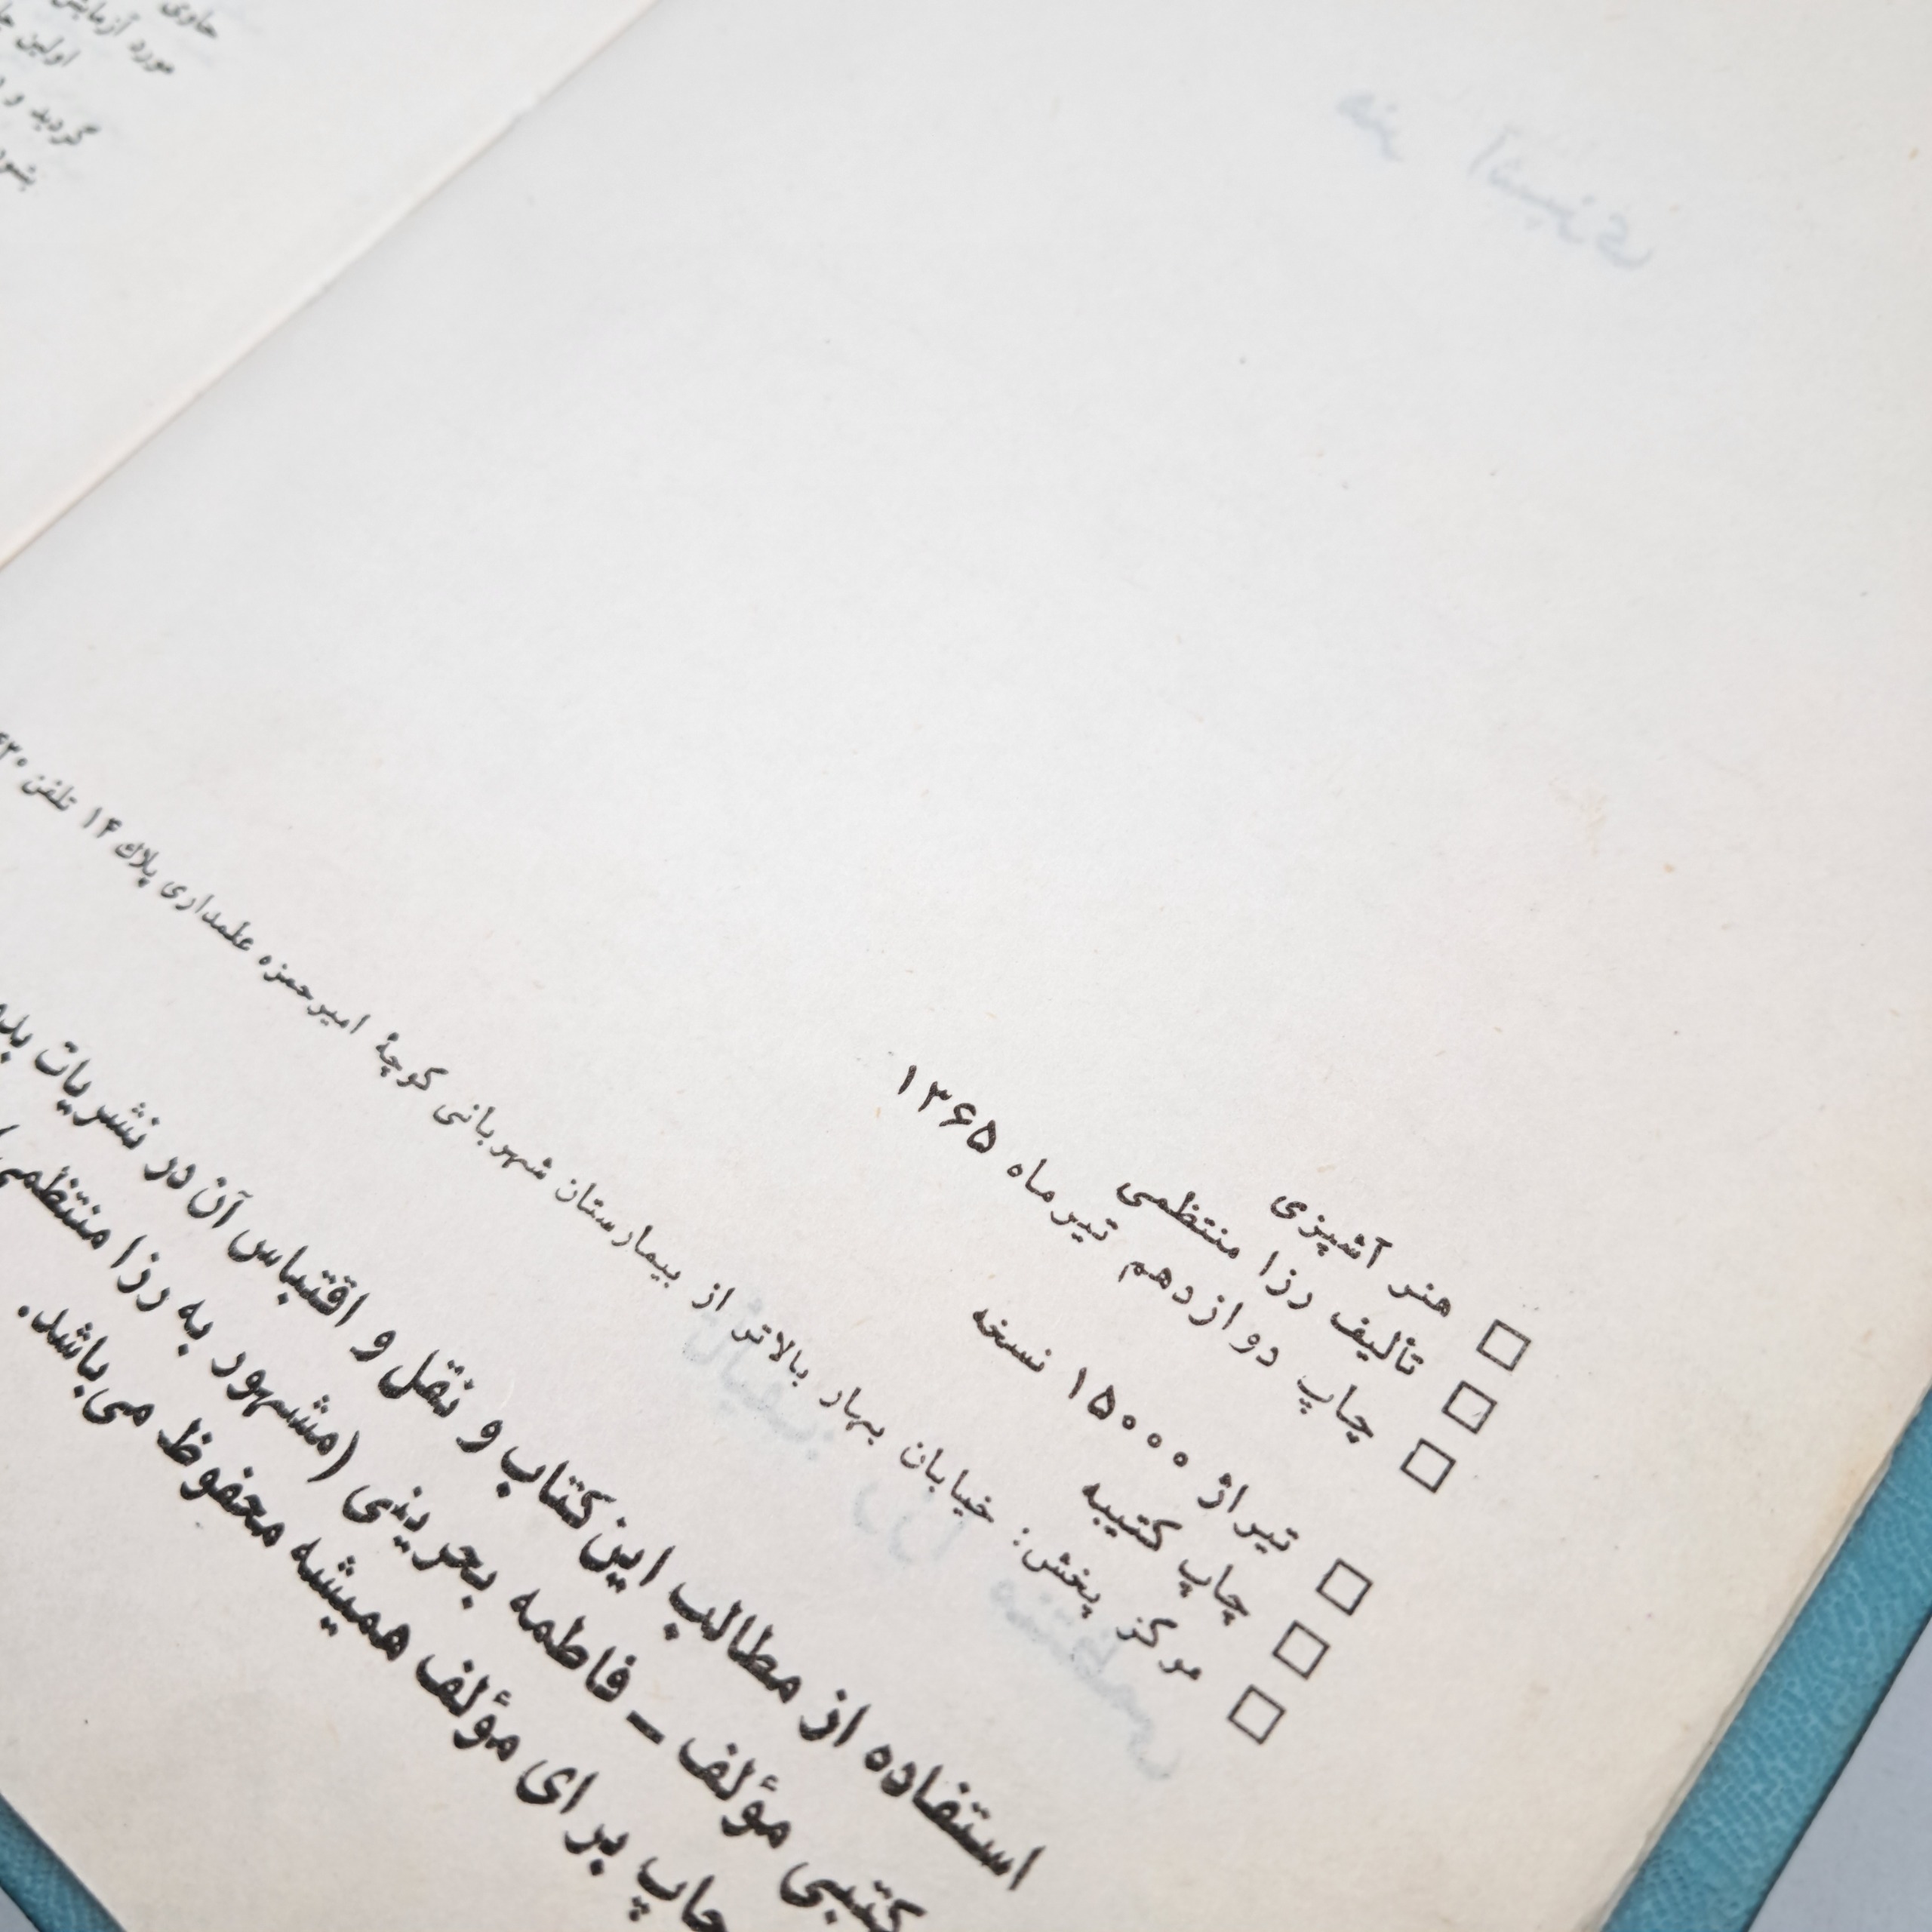 هنر آشپزی
تألیف رزا منتظمی
چاپ دوازدهم تیرماه ۱۳۶۵
تیراژ ۱۵۰۰۰ نسخه
چاپ کتیبه
مرکز پخش: خیابان بهار بالاتر از بیمارستان شهربانی کوچهٔ امیرحمزه علمداری پلاك ۱۴ تلفن
استفاده از مطالب این‌کتاب و نقل و اقتباس آن در نشریات
کتبی مؤلف ـ فاطمه بحرینی (مشهور به رزا منتظمی)
چاپ برای مؤلف همیشه محفوظ می‌باشد.
حاوی
مورد آزمایش
اولین
گردید و